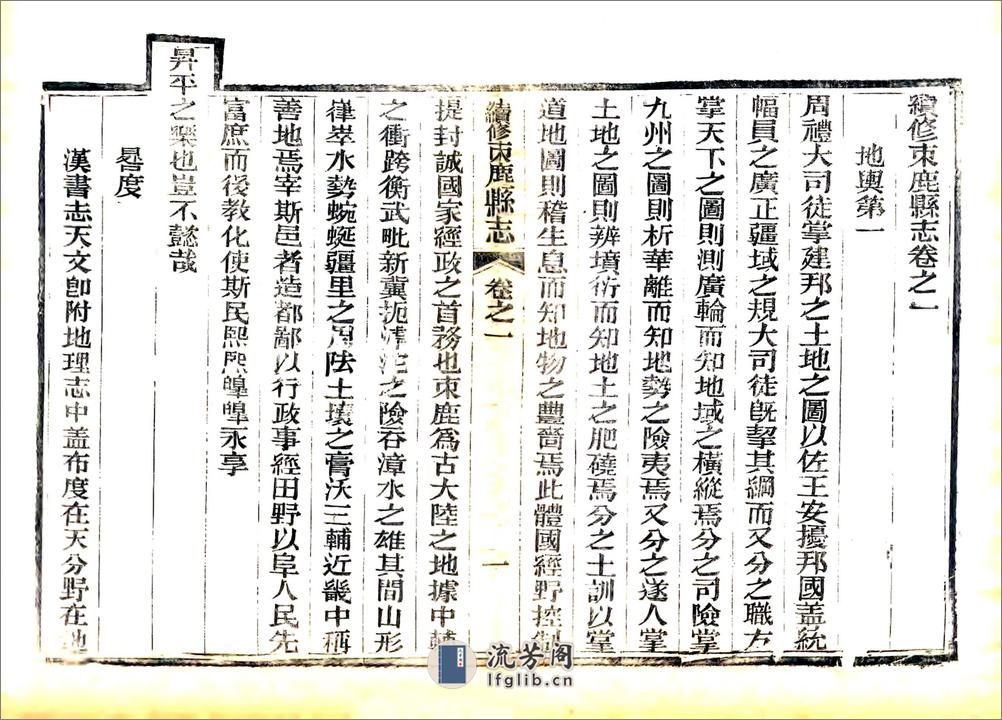 續修束鹿縣志卷之一
地輿第一
周禮大司徒掌建邦之土地之圖以佐王安擾邦國盖統
幅員之廣正疆域之規大司徒旣挈其綱而又分之職方
掌天下之圖則測廣輪而知地域之橫縱焉分之司險掌
九州之圖則析華離而知地勢之險夷焉又分之遂人掌
土地之圖則辨墳衍而知地土之肥磽焉分之土訓以掌
道地圖則稽生息而知地物之豐嗇焉此體國經野控制
續修束鹿縣志
卷之一
一
提封誠國家經政之首務也束鹿爲古大陸之地據中
之衝跨衡武毗新冀扼滹沱之險吞漳水之雄其間山形
嵂崒水勢蜿蜒疆里之周陸土壤之膏沃三輔近畿中稱
善地焉宰斯邑者造都鄙以行政事經田野以阜人民先
富庶而後教化使斯民熙熙皥皥永享
昇平之樂也豈不懿哉
晷度
漢書志天文卽附地理志中盖布度在天分野在地
流芳阁
lfglib.cn